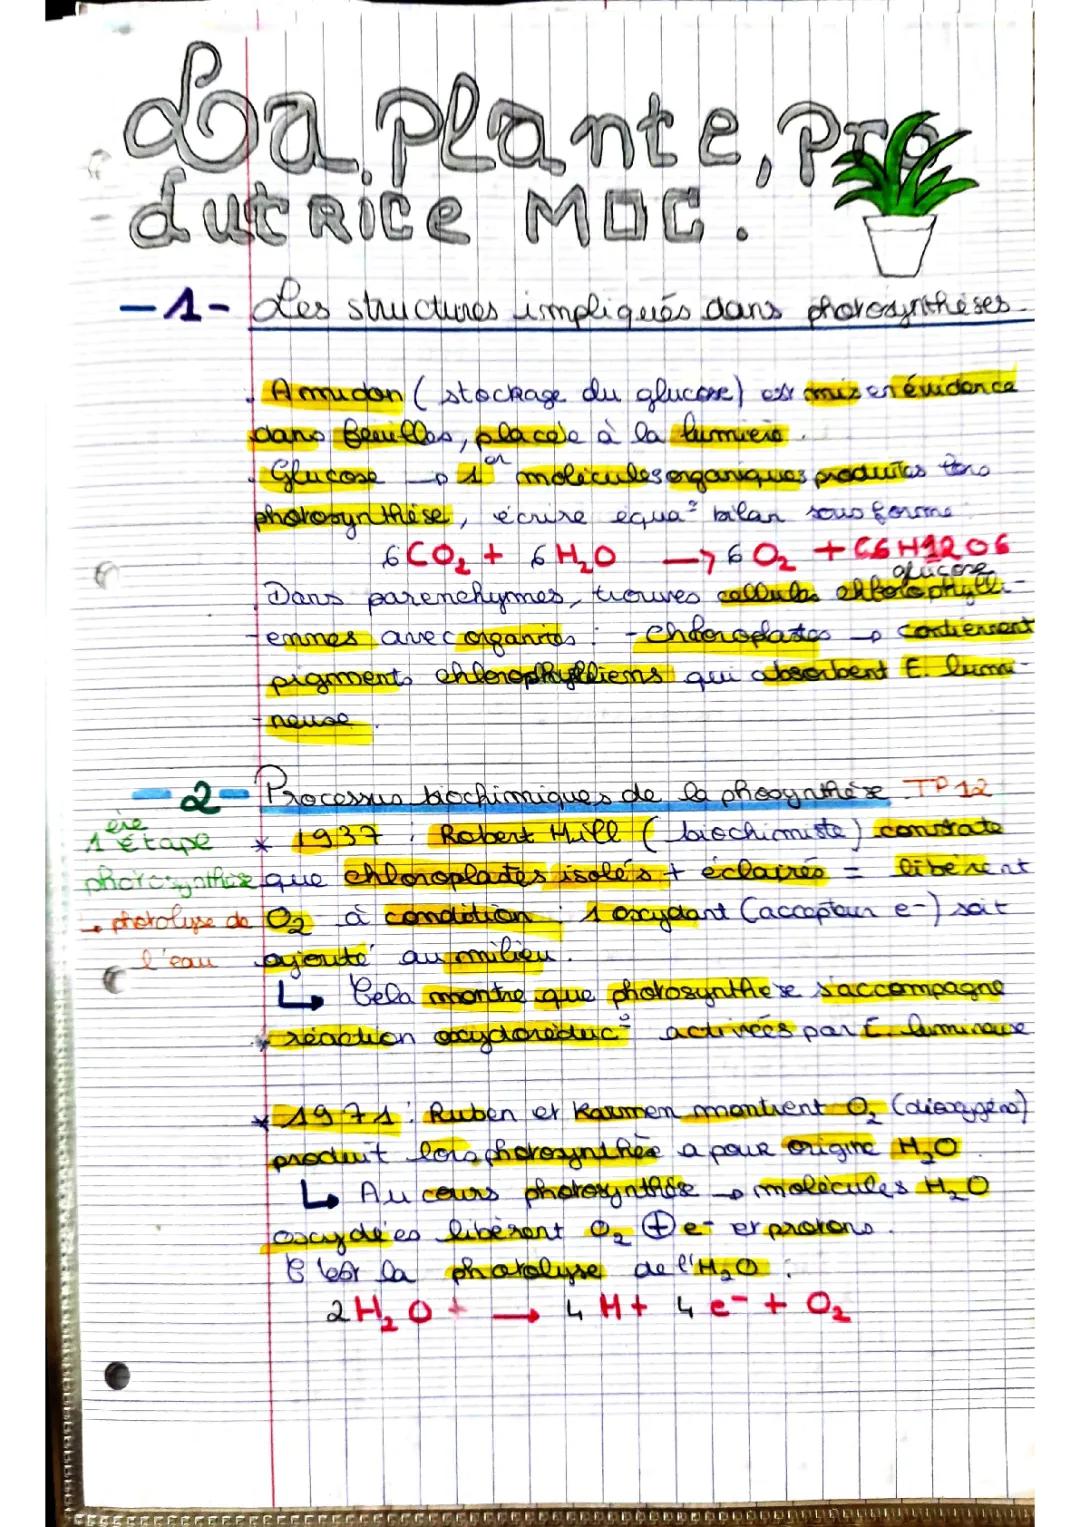 La plante, pro
dutRice MOC.
-1- Les structures impliqués dans photosynthèses.
Amidon (stockage du glucose) est mis en évidence
dans feuilles, placée à la lumière.
Glucose → 1er molécules organiques produites lors
photosynthèse, écrire équa° bilan sous forme :
6CO2 + 6H2O → 6O2 + C6H12O6
glucose
Dans parenchymes, trouves cellules chlorophylli-
ennes avec organites : - chloroplastes → contiennent
pigments chlorophylliens qui absorbent E. lumi-
neuse.
-2- Processus biochimiques de la phosynthèse TP12
1ère étape
photosynthèse
→ photolyse de
l'eau
* 1937 : Robert Hill (biochimiste) constate
que chloroplastes isolés + éclairés = libèrent
O2 à condition : 1 oxydant (accepteur e-) soit
ajouté au milieu.
↳ Cela montre que photosynthèse s'accompagne
* réaction oxydoréduc° activées par E. lumineuse
* 1971 : Ruben et Kazmen montrent O2 (dioxygène)
produit lors photosynthèe a pour origine H2O.
↳ Au cours photosynthèse → molécules H2O
oxydées libèrent O2 ⊕ e- et protons.
C'est la photolyse de l'H2O :
2H2O + → 4H+ 4e- + O2